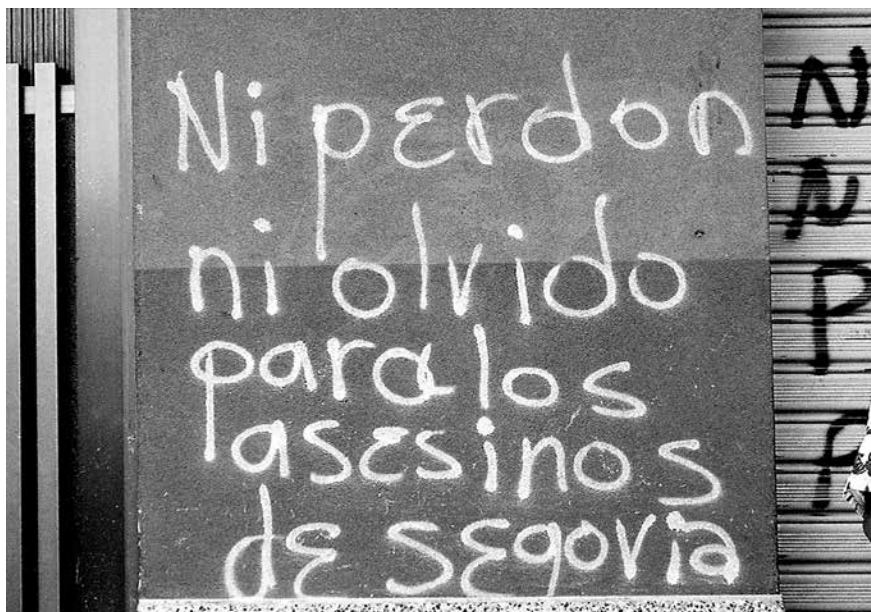 Ni perdon
ni olvido
para los
asesinos
de segovia
N
N
P